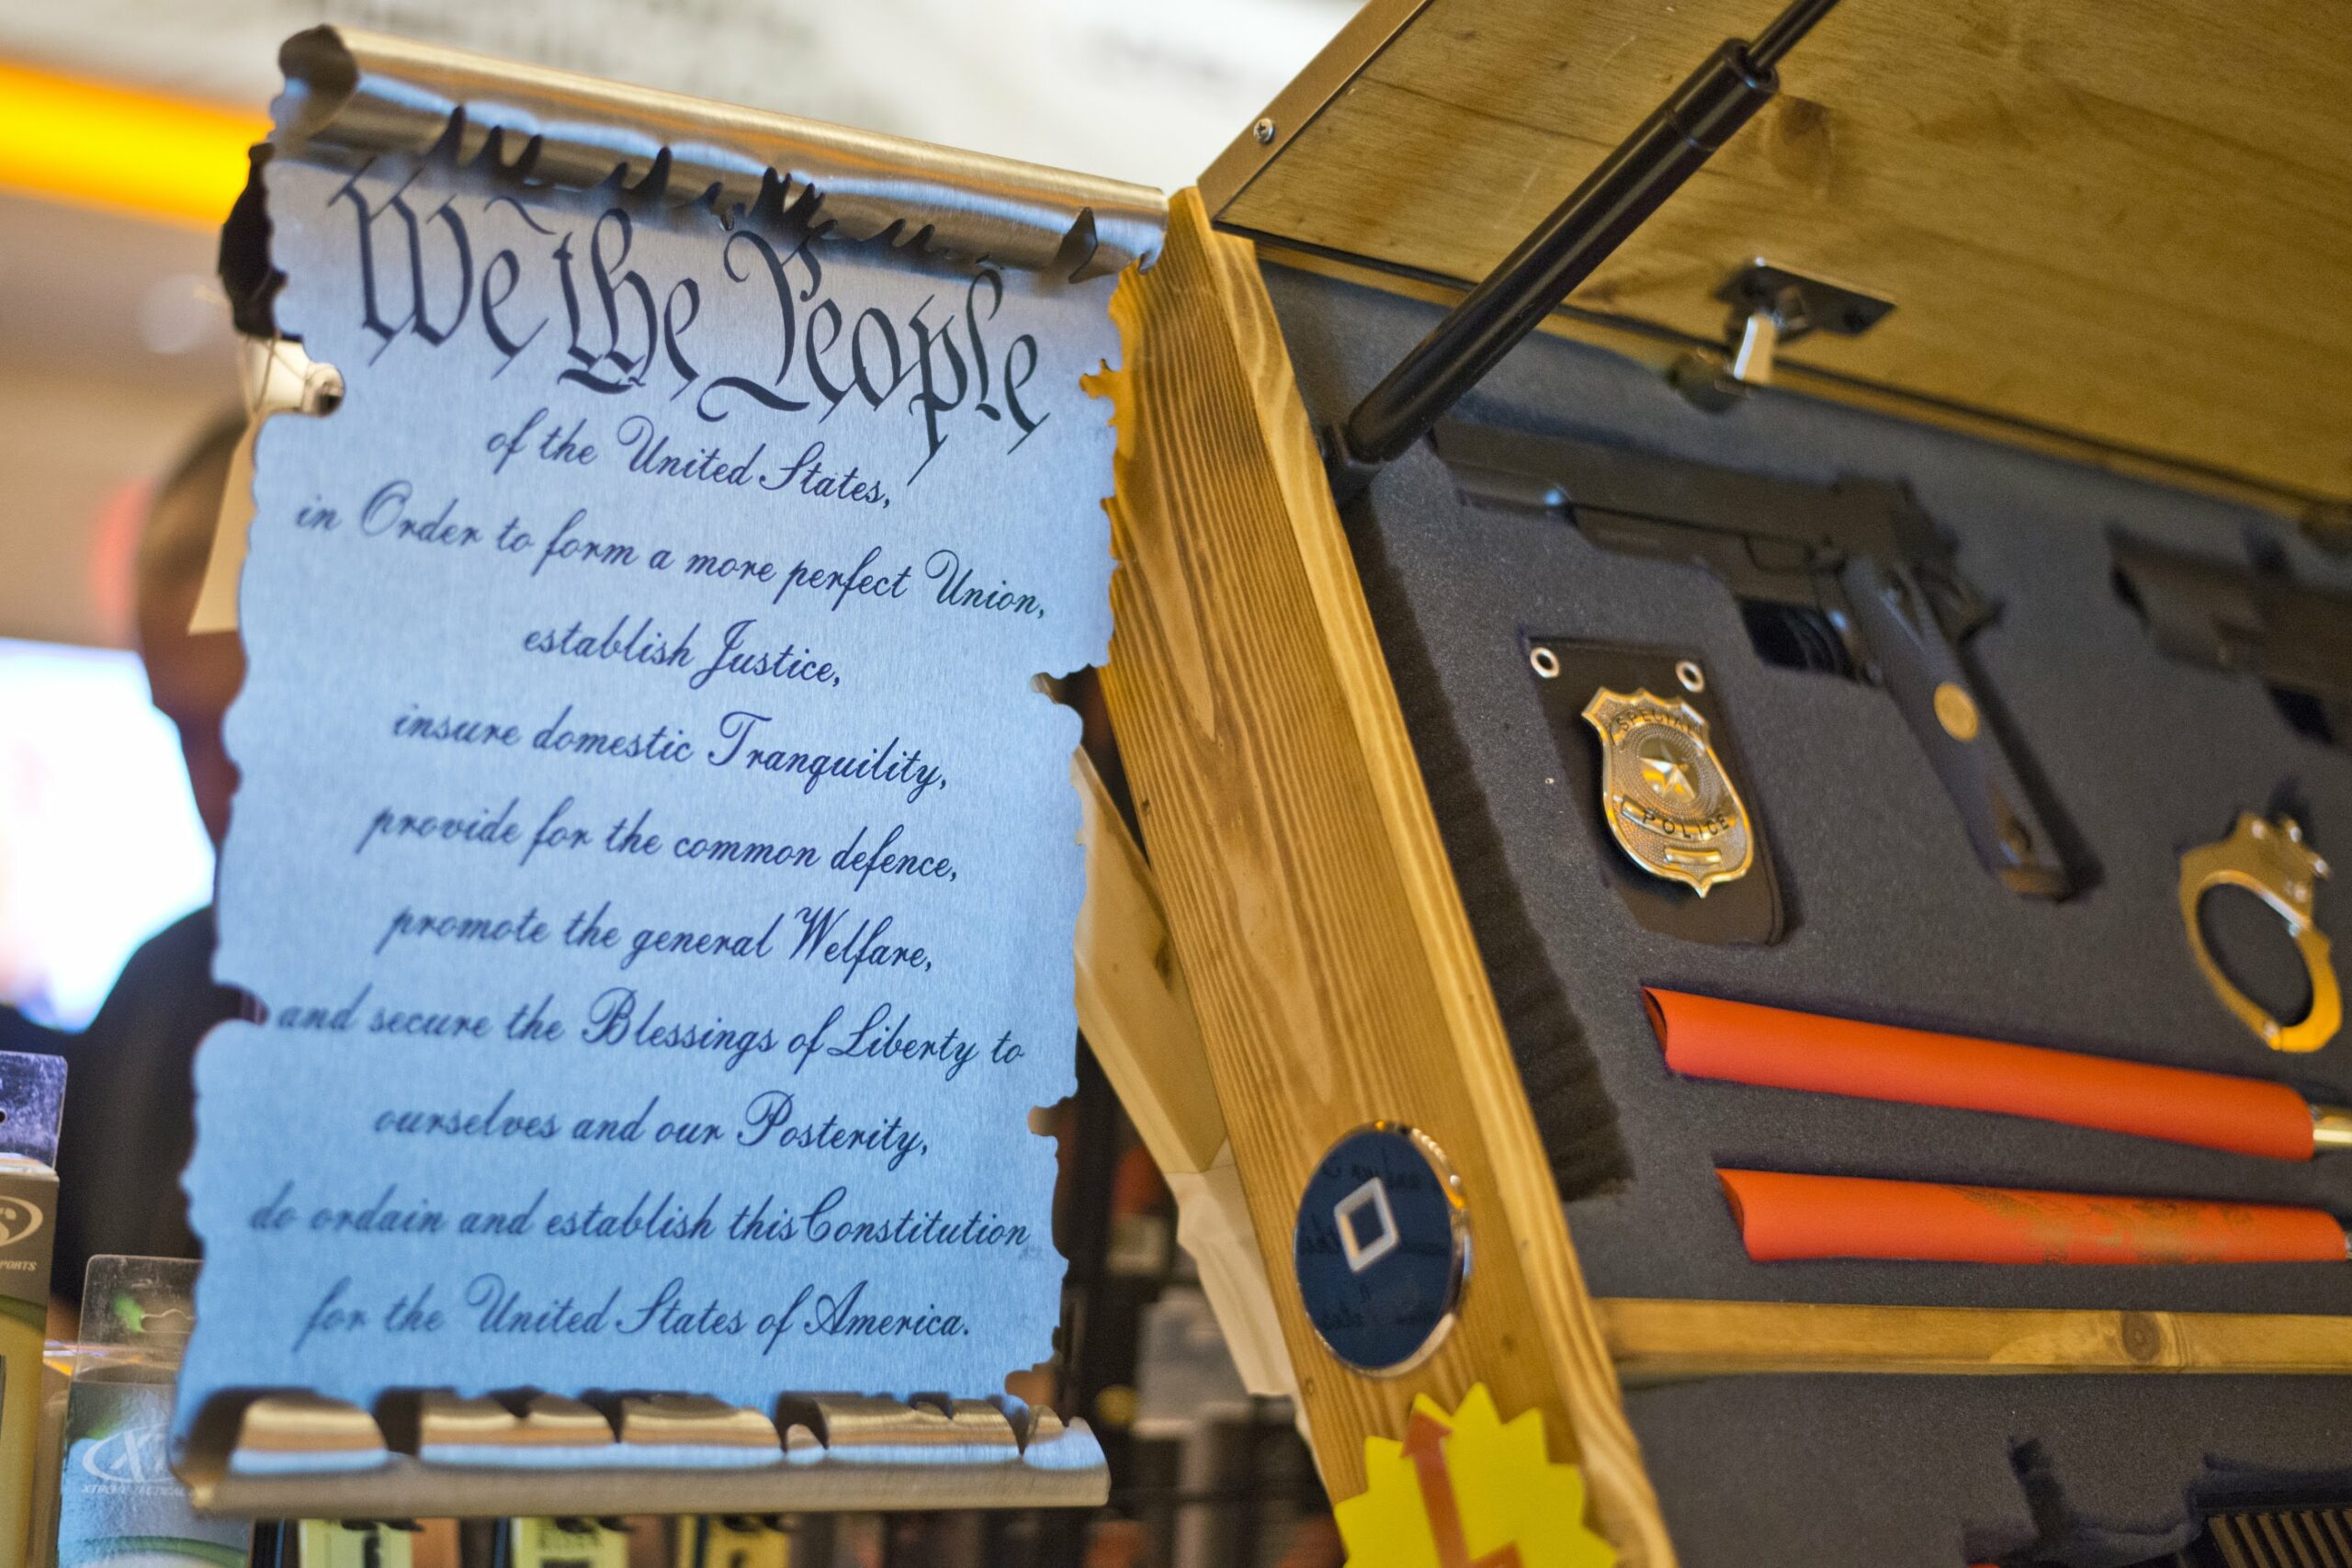 We the People
of the United States,
in Order to form a more perfect Union,
establish Justice,
insure domestic Tranquility,
provide for the common defence,
promote the general Welfare,
and secure the Blessings of Liberty to
ourselves and our Posterity,
do ordain and establish this Constitution
for the United States of America.
SPECIAL
POLICE
PORTS